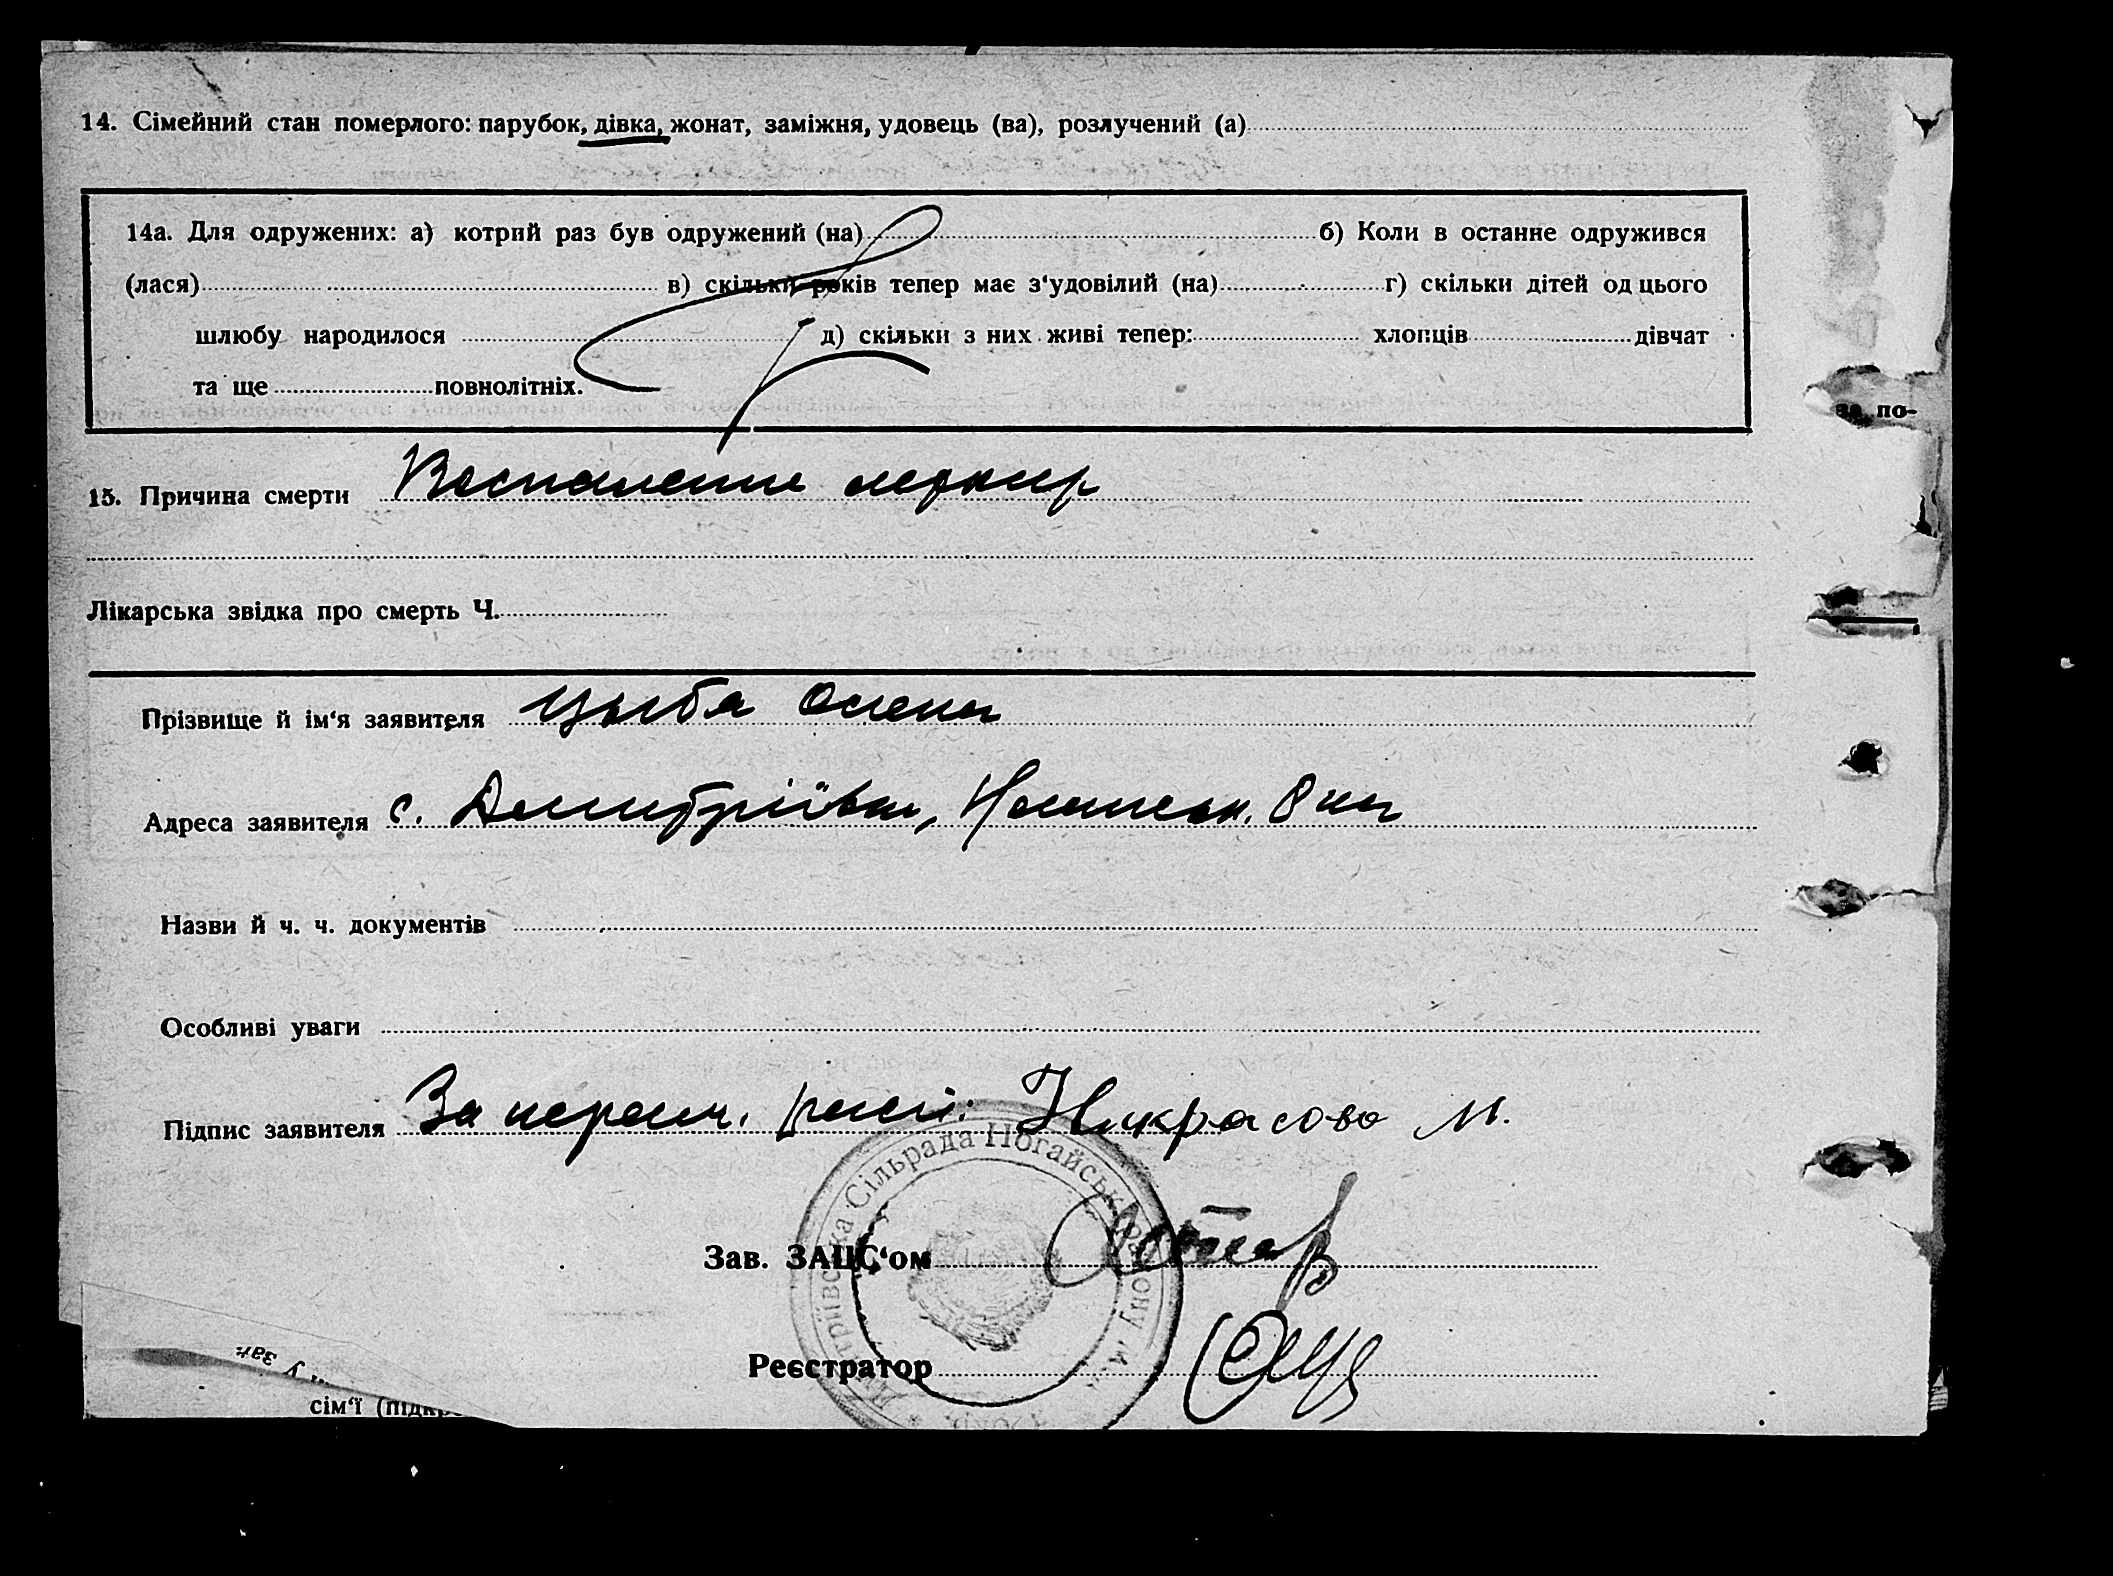 14. Сімейний стан померлого: парубок, дівка, жонат, заміжня, удовець (ва), розлучений (а)
14а. Для одружених: а) котрий раз був одружений (на) б) Коли в останнє одружився
(лася) в) скільки років тепер має з'удовілий (на) г) скільки дітей од цього
шлюбу народилося д) скільки з них живі тепер: хлопців дівчат
та ще повнолітніх.
за по-
15. Причина смерти Воспаление легких
Лікарська звідка про смерть Ч.
Прізвище й ім'я заявителя Цыба Олена
Адреса заявителя с. Дмитріївка,
Назви й ч. ч. документів
Особливі уваги
Підпис заявителя За Никрасова М.
Сільрада Ногайськ району
Зав. ЗАЦС'ом
Реєстратор
у зап
сім'ї (підкр